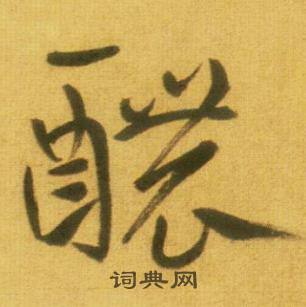 醲
词典网